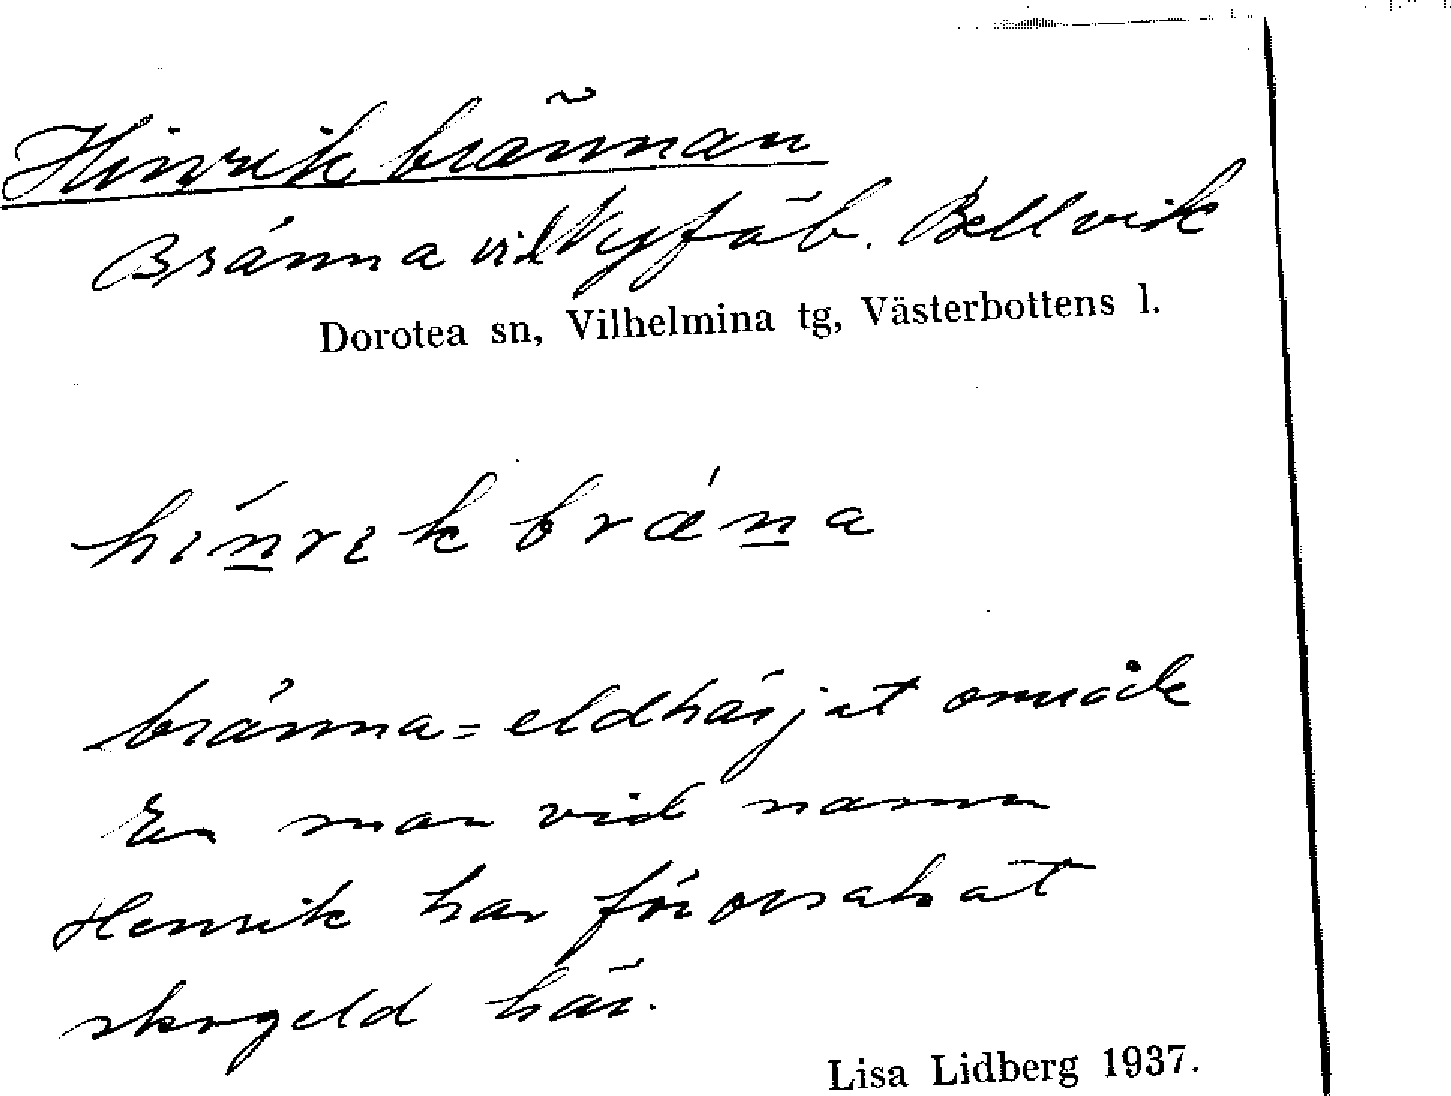 Hinrik brännan
Bränna vid Nyfäb. Bellvik
Dorotea sn, Vilhelmina tg, Västerbottens l.
hínrɩk brǽna
bränna = eldhärjat område
En man vid namn
Henrik har förorsakat
skogeld här.
Lisa Lidberg 1937.